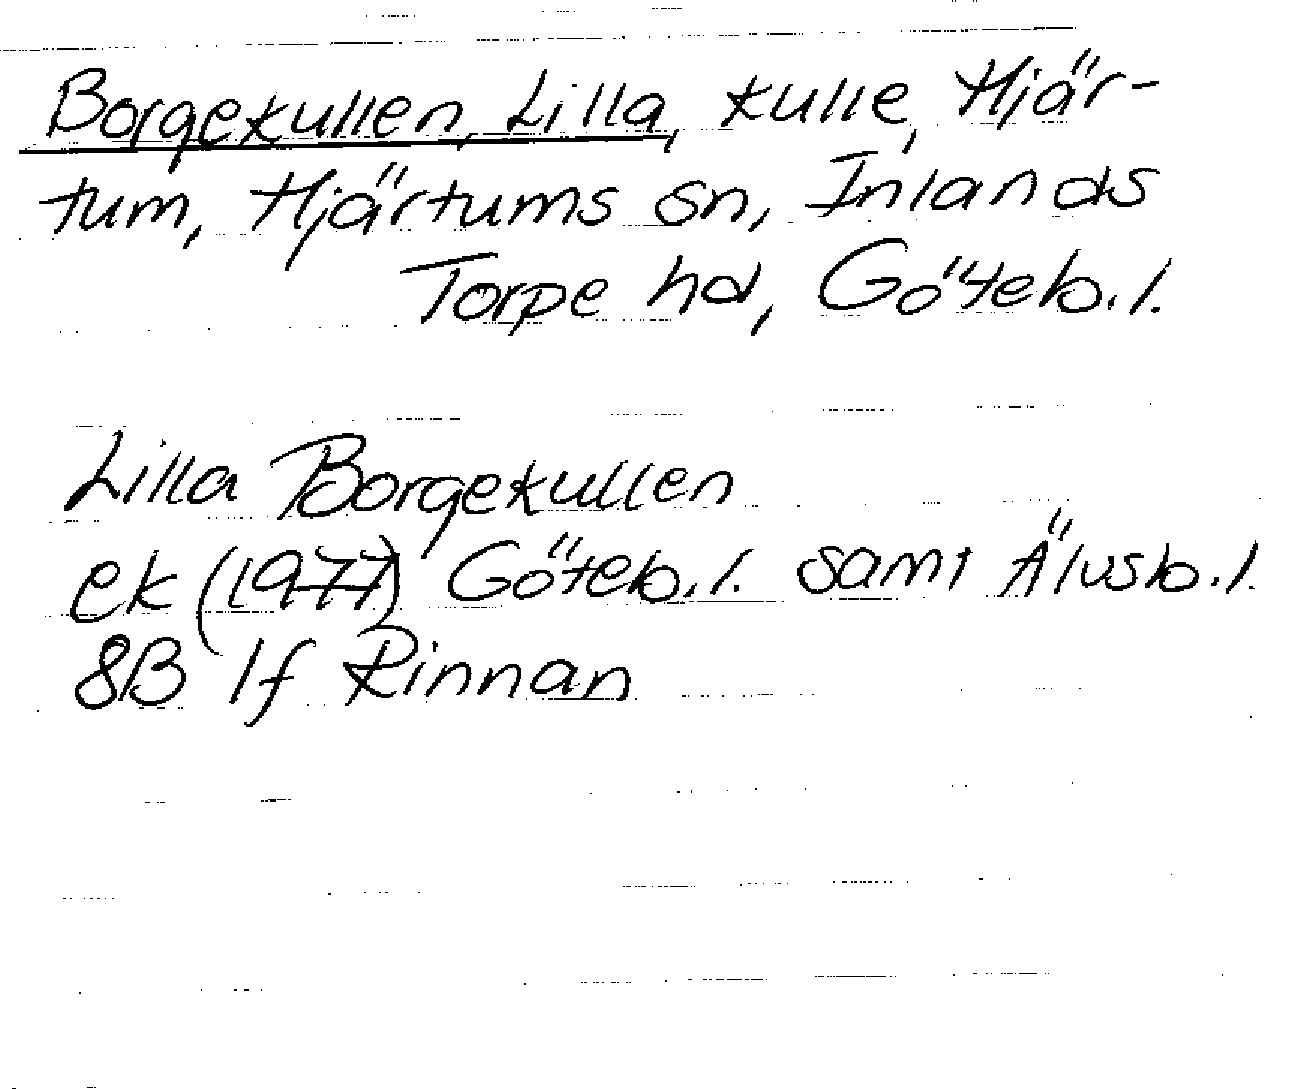 Borgekullen, Lilla, kulle, Hjär-
tum, Hjärtums sn, Inlands
Torpe hd, Göteb.l.
Lilla Borgekullen
ek (1977) Göteb.l. samt Älvsb.l.
8B 1f Rinnan